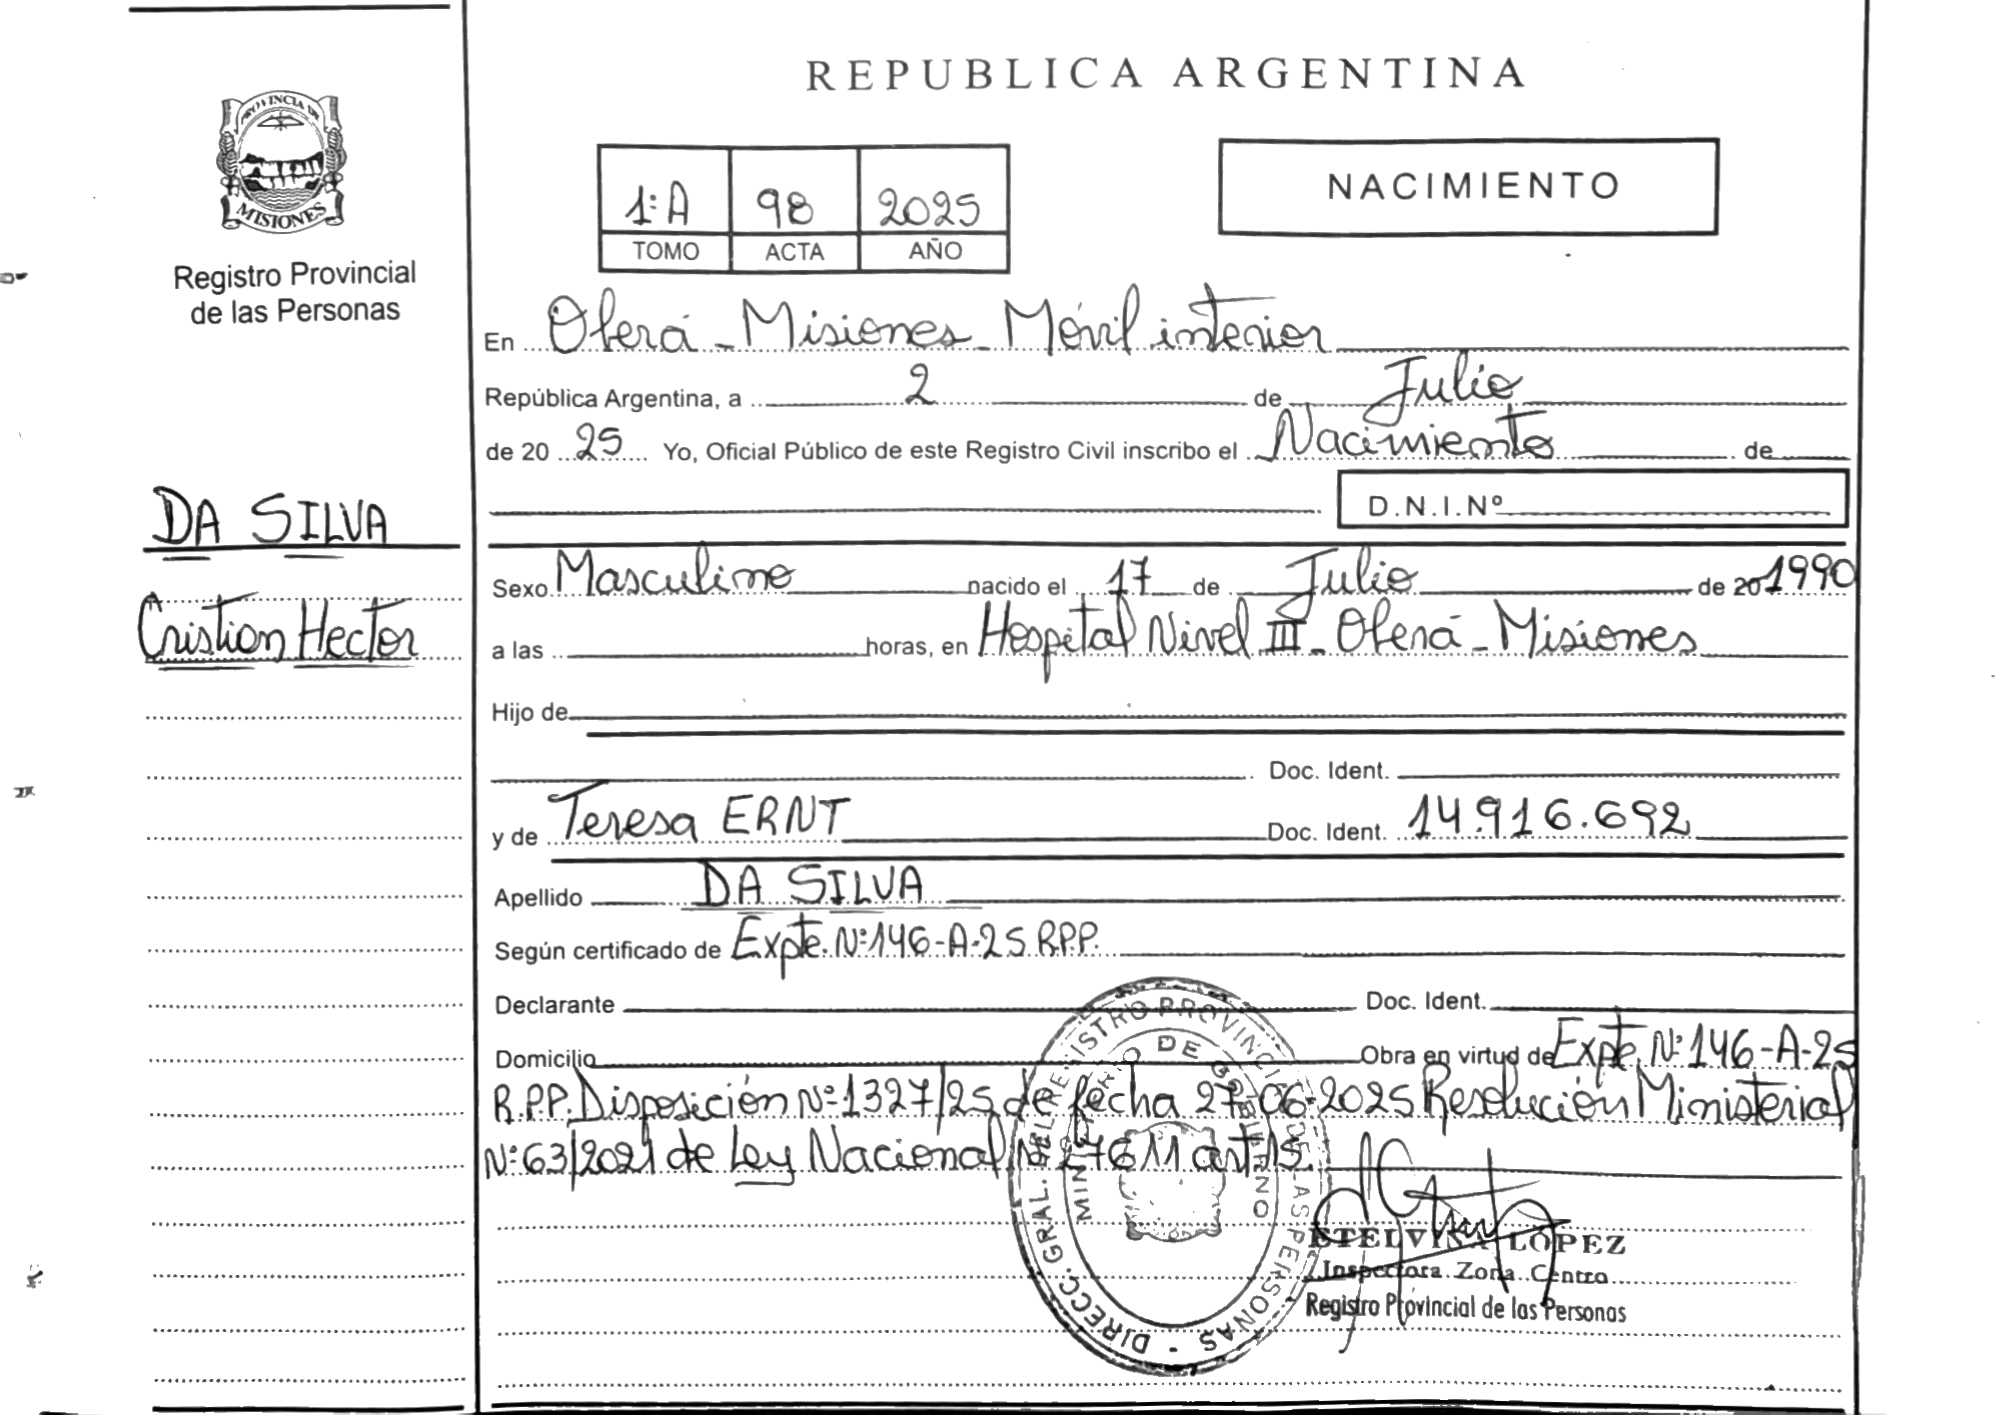 REPUBLICA ARGENTINA
PROVINCIA DE
MISIONES
Registro Provincial
de las Personas
1:A 98 2025
TOMO ACTA AÑO
NACIMIENTO
En Oberá - Misiones - Móvil interior
República Argentina, a 2 de Julio
de 20 25 Yo, Oficial Público de este Registro Civil inscribo el Nacimiento de
D.N.I.Nº
DA SILVA
Cristian Hector
Sexo Masculino nacido el 17 de Julio de 20 1990
a las horas, en Hospital Nivel III - Oberá - Misiones
Hijo de
Doc. Ident.
y de Teresa ERNT Doc. Ident. 14.916.692
Apellido DA SILVA
Según certificado de Expte. Nº 146-A-25 R.P.P.
Declarante Doc. Ident.
Domicilio Obra en virtud de Expte. Nº 146-A-25
R.P.P. Disposición Nº 1327/25 de fecha 27-06-2025 Resolución Ministerial
Nº 63/2021 de Ley Nacional Nº 27611 art 15.
DIRECC. GRAL. DEL REGISTRO PROVINCIAL DE LAS PERSONAS
MINISTERIO DE GOBIERNO
ETELVINA LOPEZ
Inspectora Zona Centro
Registro Provincial de las Personas